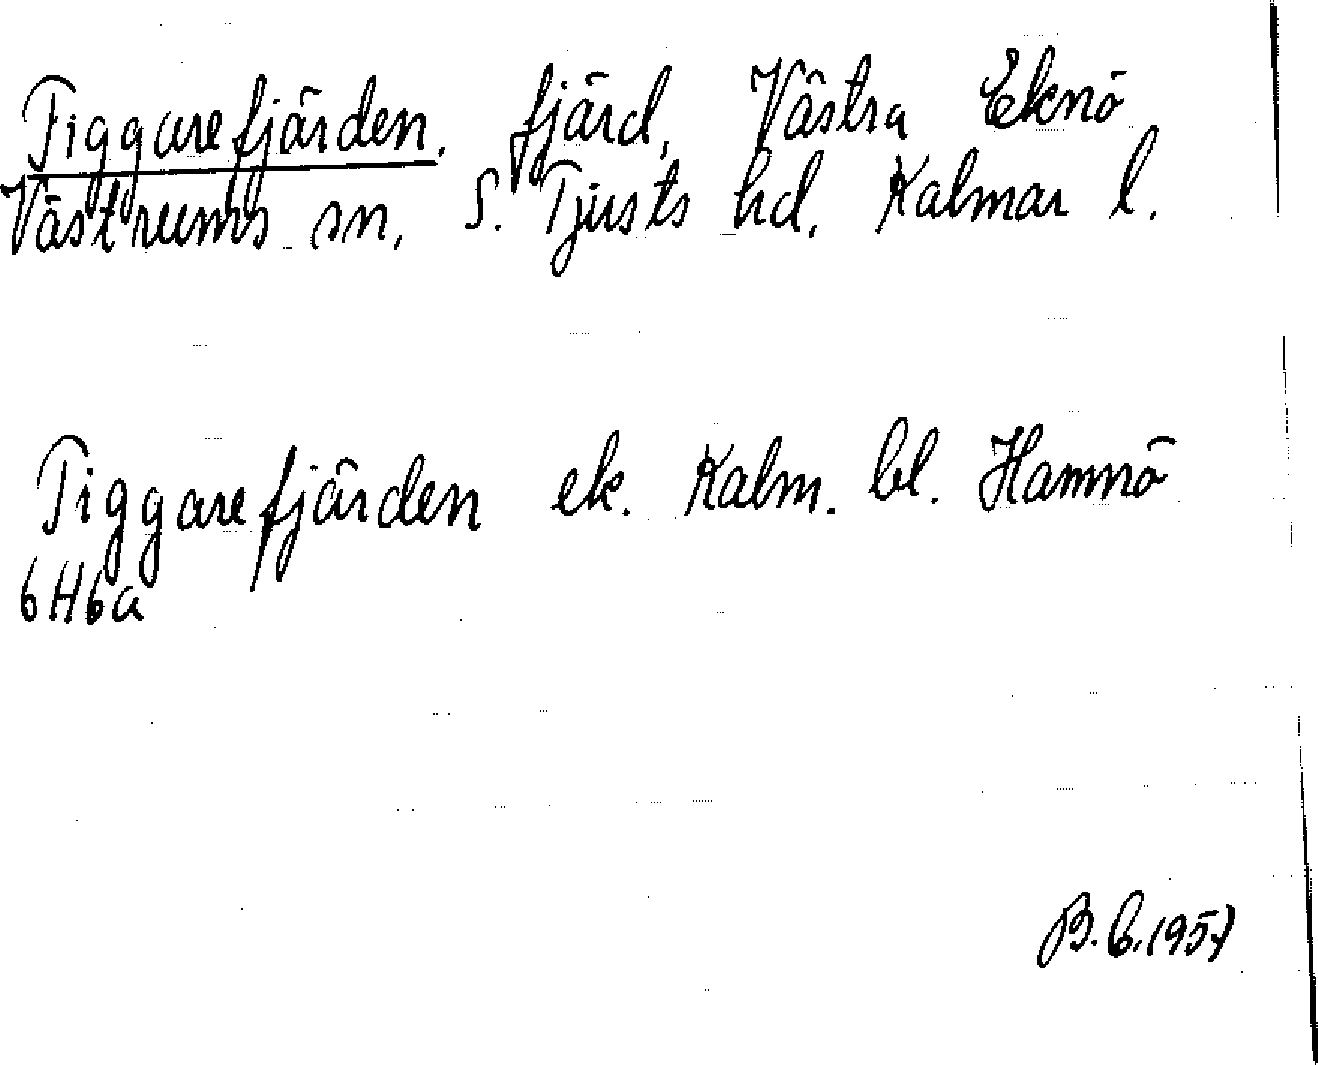 Tiggarefjärden, fjärd, Västra Eknö
Västrums sn, S. Tjusts hd. Kalmar l.
Tiggarefjärden ek. Kalm. bl. Hamnö
6H6a
B.G.1957